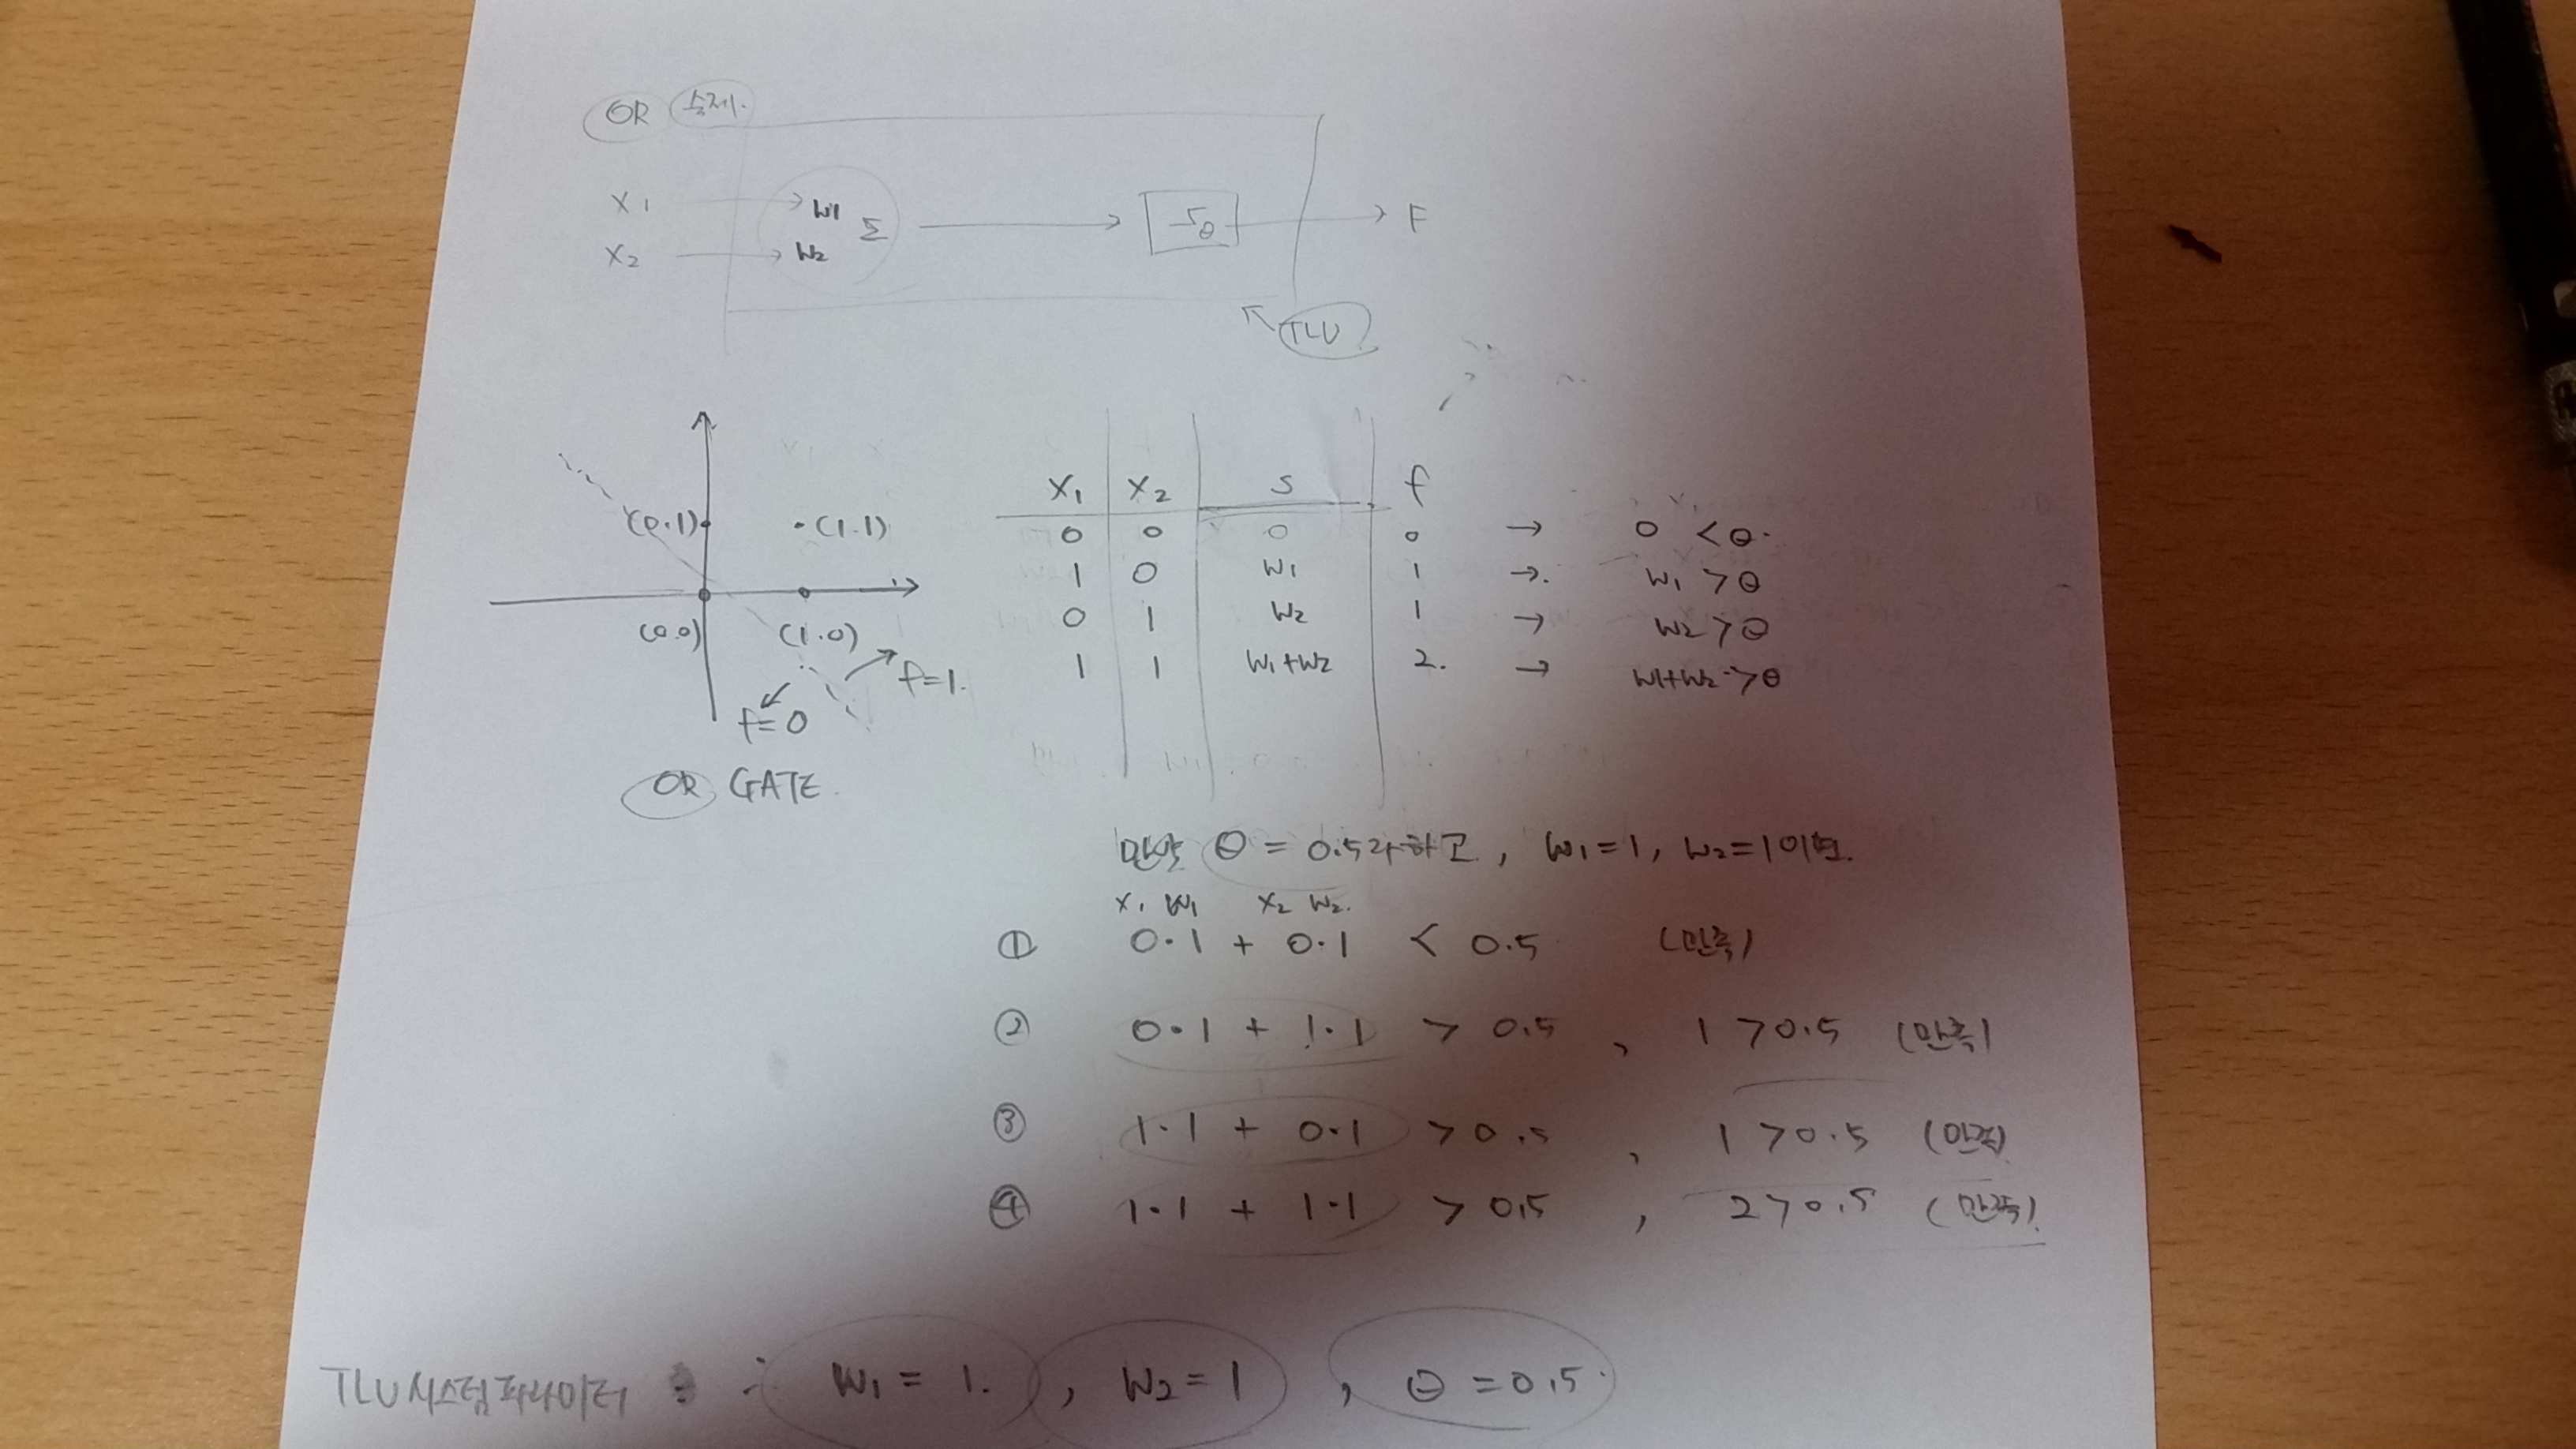 OR 숙제.
X1 → W1 Σ → Γθ → F
X2 → W2
↖ TLU
(0.1) •(1.1)
(0.0) (1.0)
f=1.
f=0
OR GATE.
X1 X2 S f
0 0 0 0 → 0 < θ.
1 0 W1 1 →. W1 > θ
0 1 W2 1 → W2 > θ
1 1 W1+W2 2. → W1+W2 > θ
만약 θ = 0.5라하고, W1=1, W2=1이면.
X1 W1 X2 W2.
① 0·1 + 0·1 < 0.5 (만족)
② 0·1 + 1·1 > 0.5, 1 > 0.5 (만족)
③ 1·1 + 0·1 > 0.5, 1 > 0.5 (만족)
④ 1·1 + 1·1 > 0.5, 2 > 0.5 (만족)
TLU 시스템파라미터 ∴ W1 = 1. , W2 = 1 , θ = 0.5.